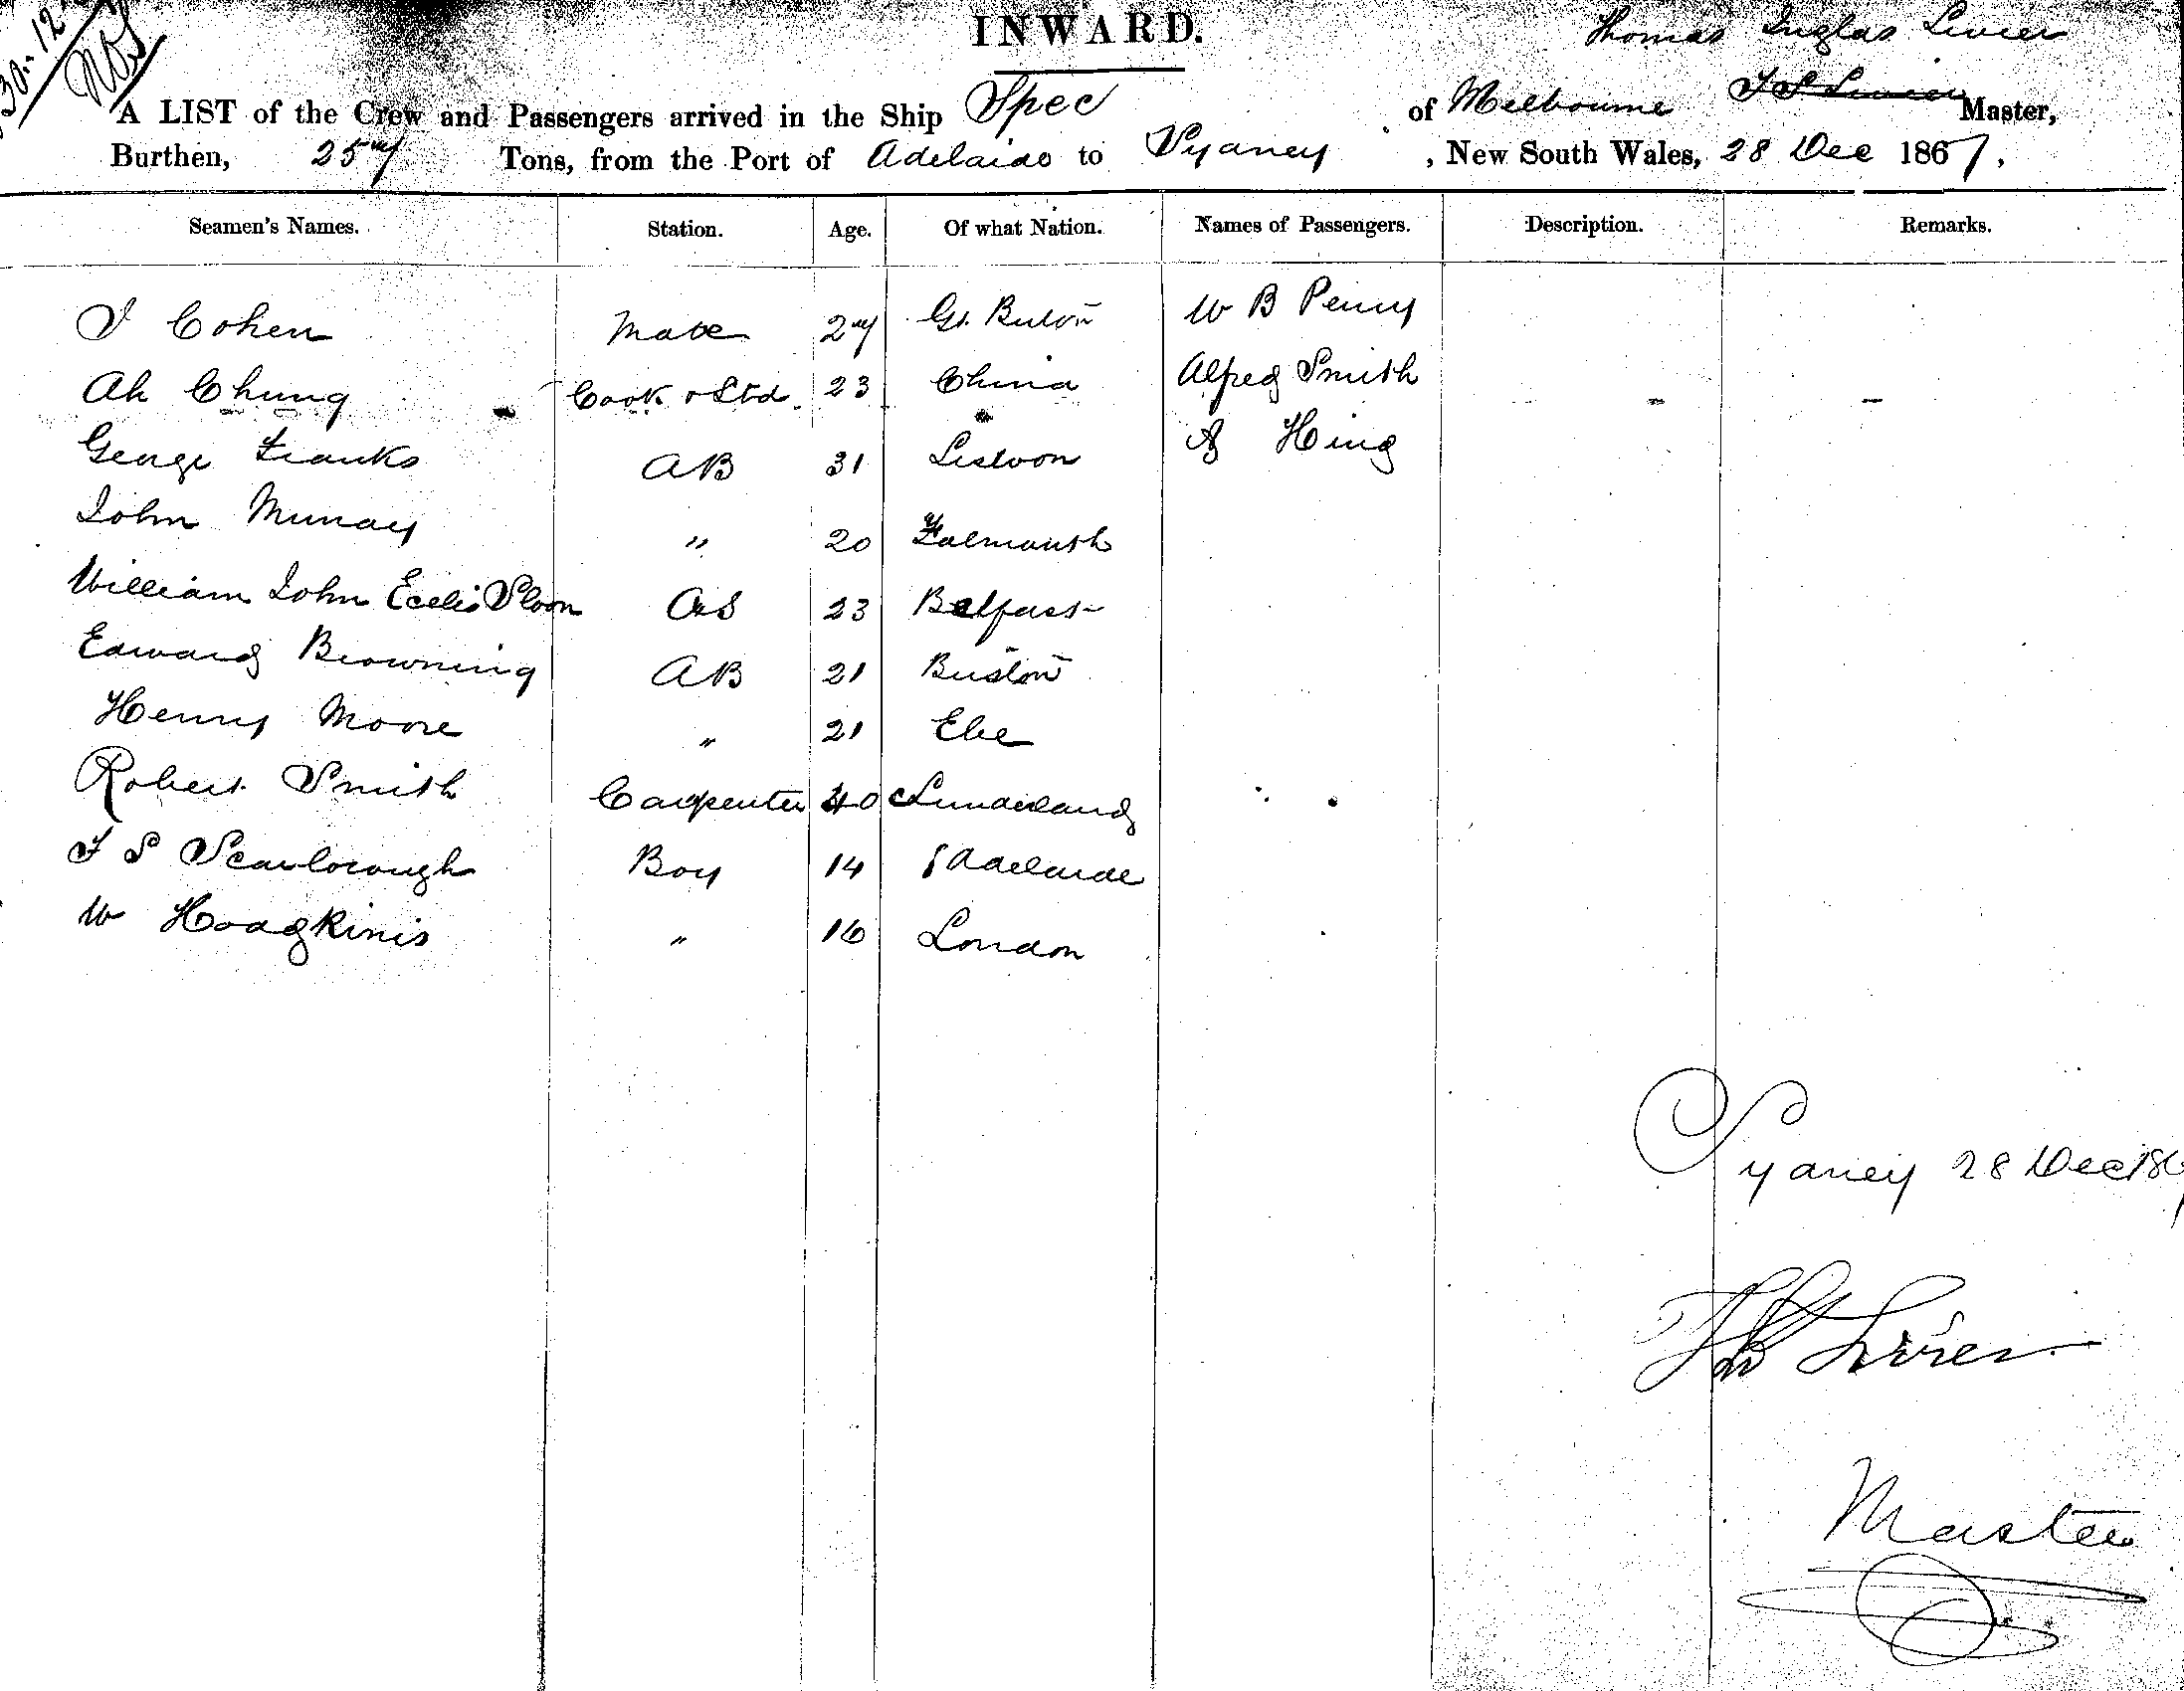 30..12
INWARD.
Thomas Inglas Livier
A LIST of the Crew and Passengers arrived in the Ship Spec of Melbourne Master,
Burthen, 257 Tons, from the Port of Adelaide to Sydney, New South Wales, 28 Dec 1867,
Seamen's Names. Station. Age. Of what Nation. Names of Passengers. Description. Remarks.
Cohen Mate 27 Gt. Britn W B Penny
Ah Chung Cook & Std. 23 China Alfred Smith
George Franks AB 31 Lisbon Hing
John Murray " 20 Falmouth
William John Eccles Sloan OS 23 Belfast
Edward Browning AB 21 Bristow
Henry Moore " 21 Ebe
Robert Smith Carpenter 40 Sunderland
F S Scarborough Boy 14 Adelaide
W Hodgkinis " 16 London
Sydney 28 Dec 186
Livier
Master